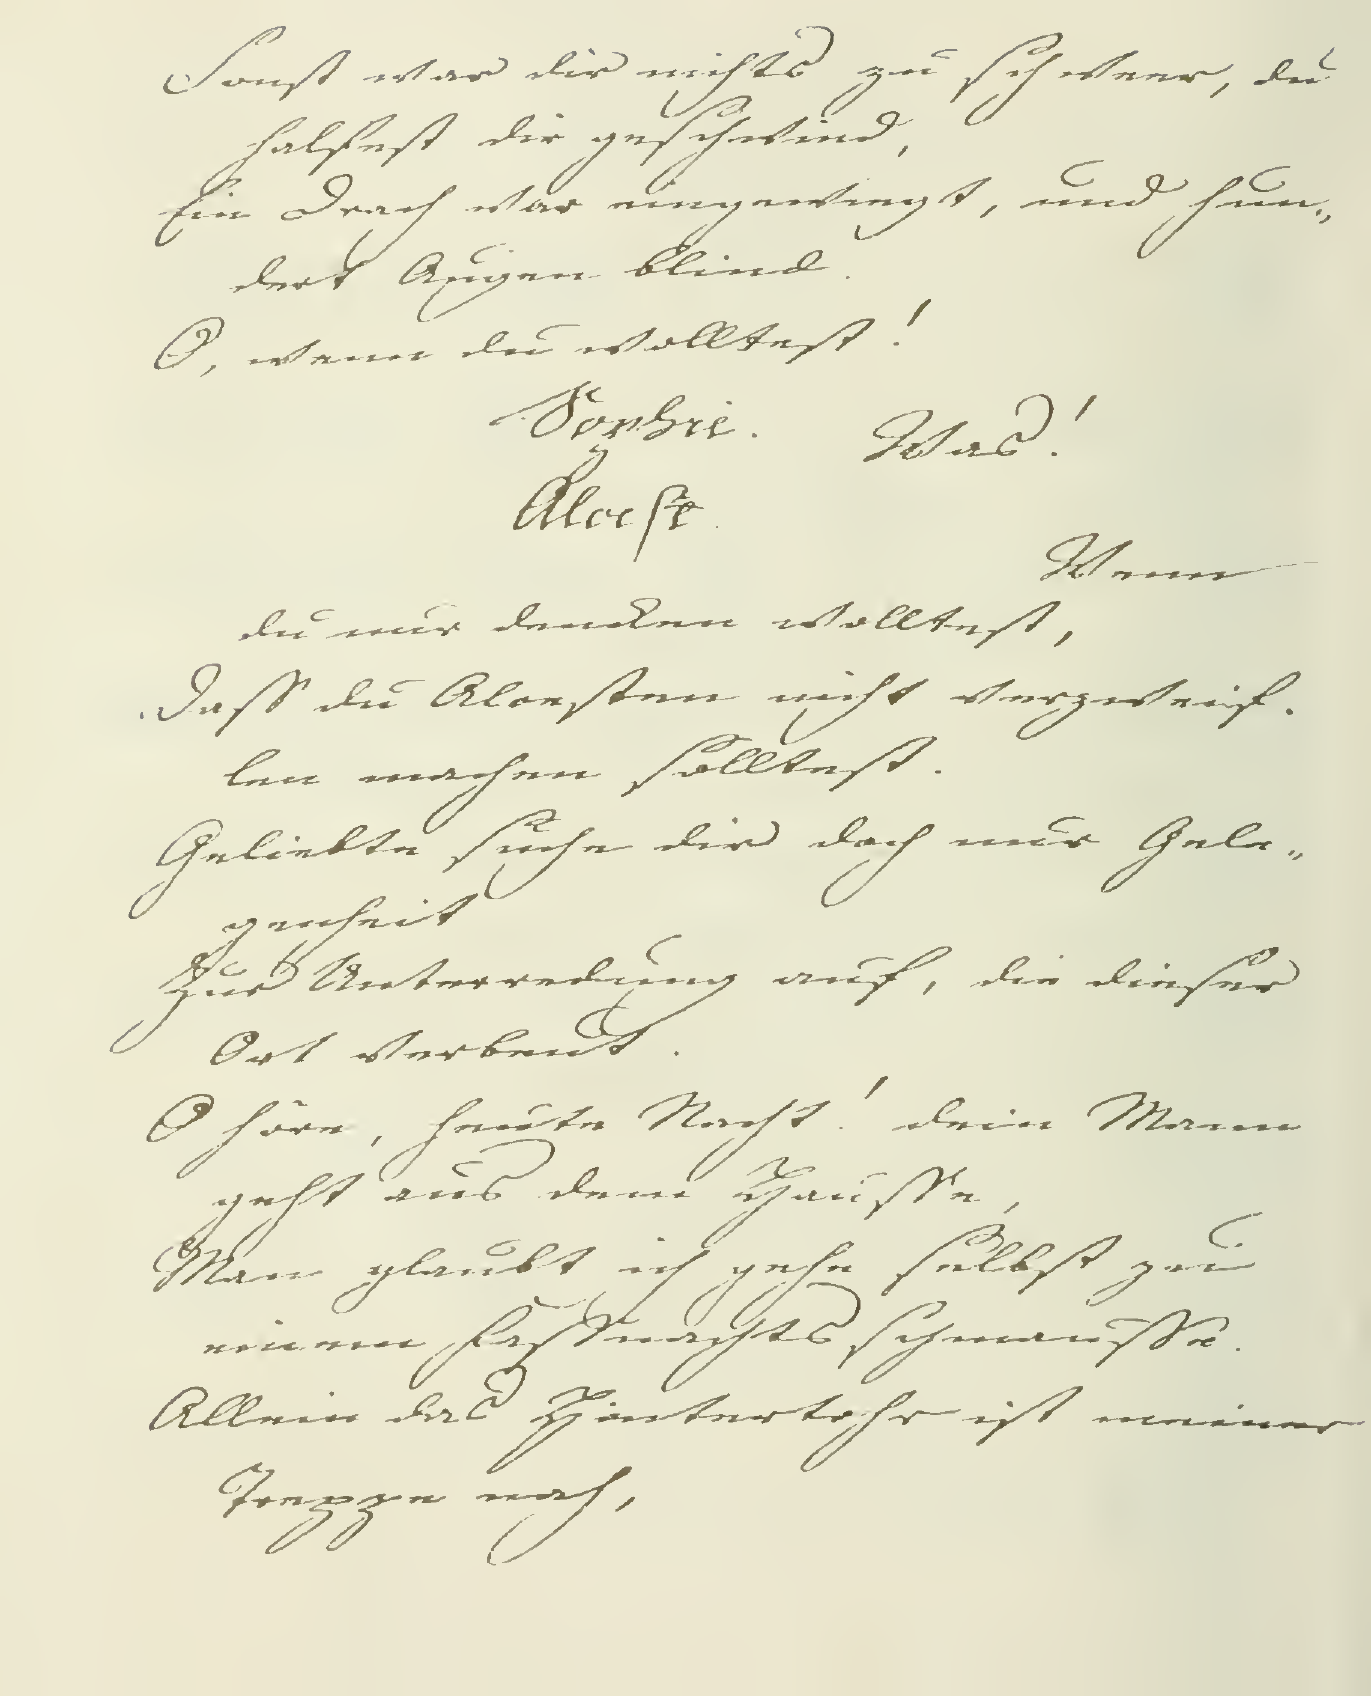 Sonst war dir nichts zu schweer, du
halfest dir geschwind,
Ein Drach war eingewiegt, und hun„
dert Augen blind.
O, wenn du wolltest!
Sophie. Was!
Alceste.
Wenn
du nur dencken wolltest,
Dass du Alcesten nicht verzweif-
len machen solltest.
Geliebte suche dir doch nur Gele„
genheit
Zur Unterredung auf, die dieser
Ort verbeut.
O höre, heute Nacht! dein Mann
geht aus dem Hausse,
Man glaubt ich gehe selbst zu
einem Fassnachts schmausse.
Allein das Hintertohr ist meiner
Treppe nah,